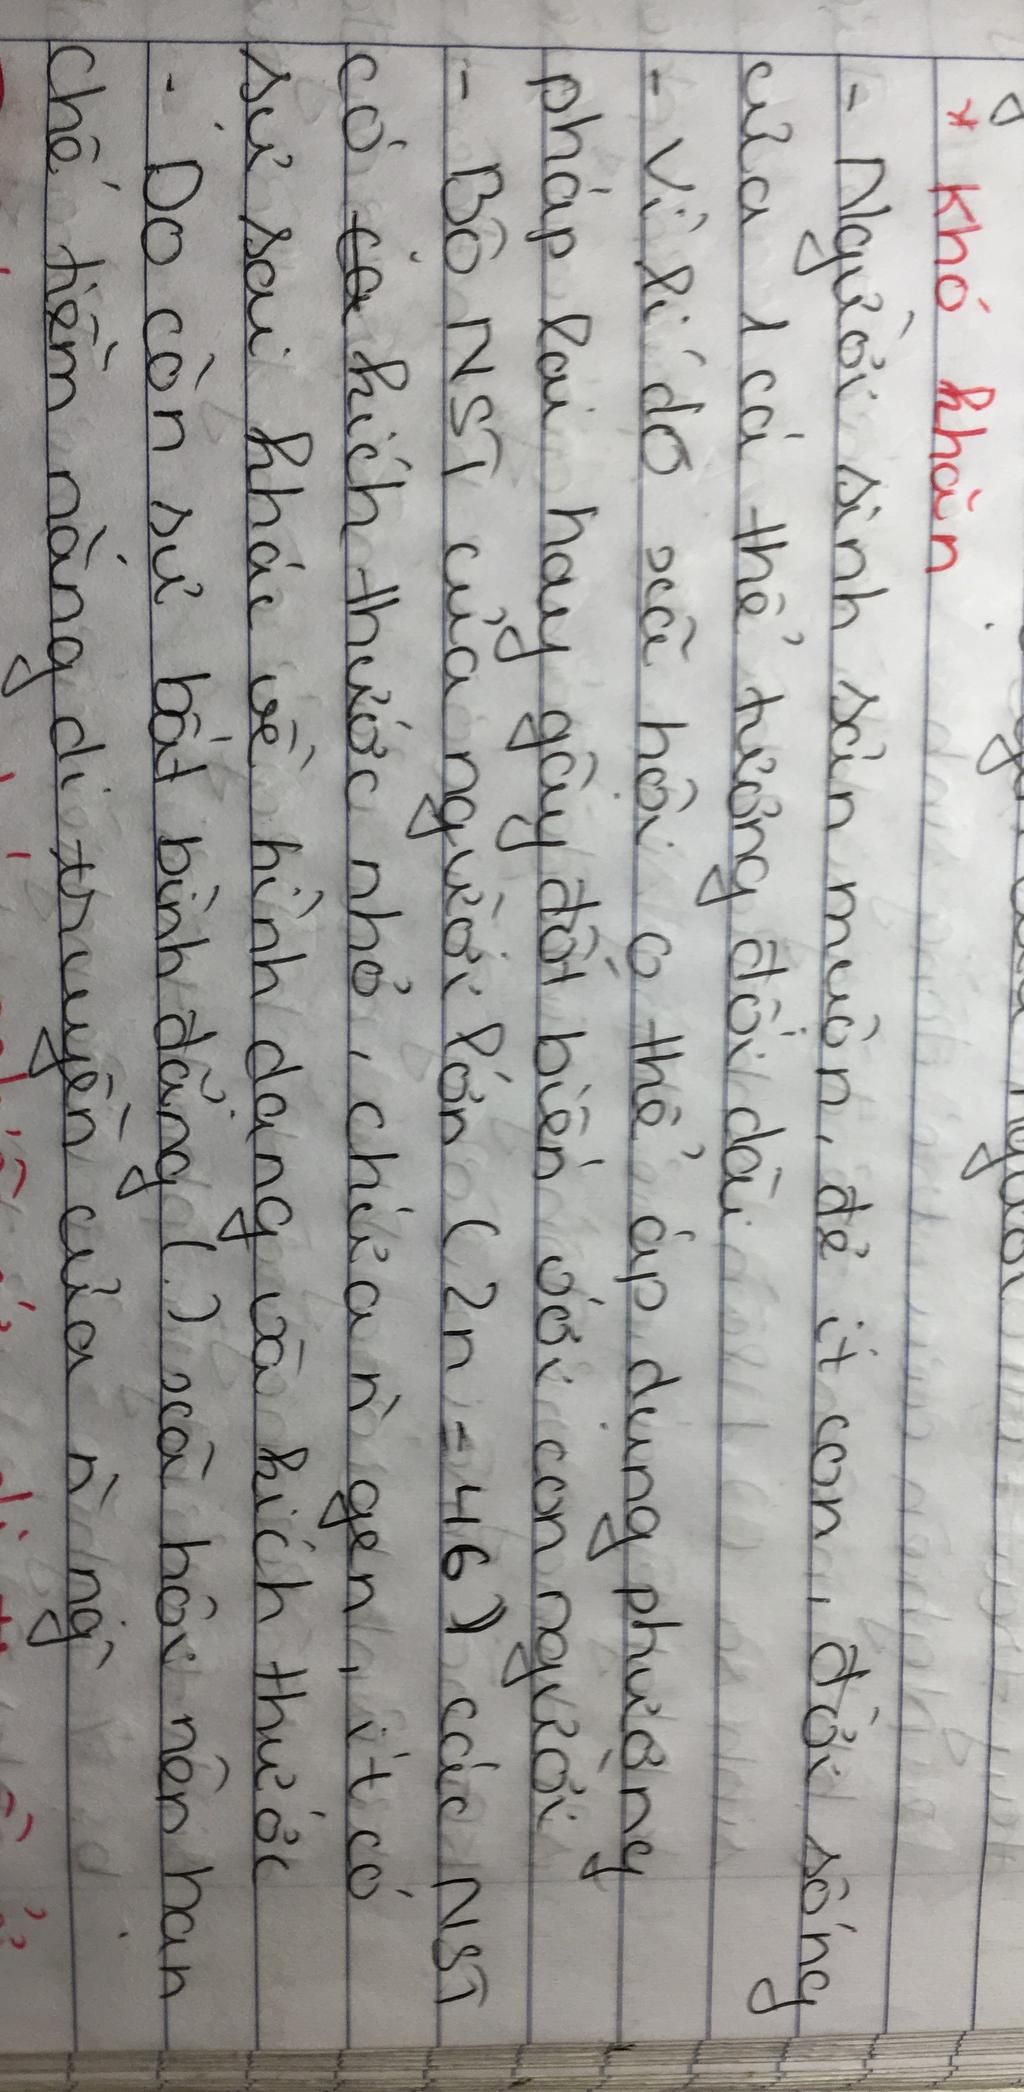 * Khó khăn
- Người sinh sản muộn, đẻ ít con, đời sống
của 1 cá thể tương đối dài
- Vì lí do xã hội 0 thể áp dụng phương
pháp lai hay gây đột biến với con người
- Bộ NST của người lớn (2n = 46) các NST
có kích thước nhỏ, chứa n` gen, ít có
sự sai khác về hình dạng và kích thước
- Do còn sự bất bình đẳng (.) xã hội nên hạn
chế tiềm năng di truyền của n` ng`